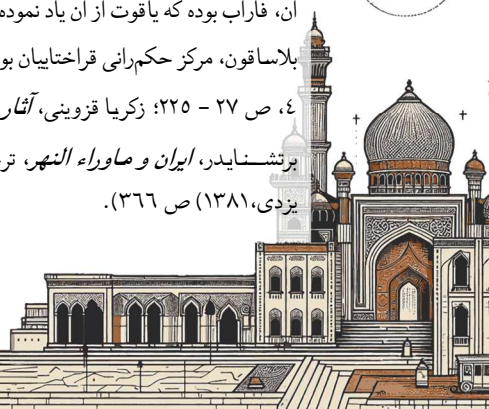 آن، فاراب بوده که یاقوت از آن یاد نموده
بلاساقون، مرکز حکم‌رانی قراختاییان بو
٤، ص ٢٧ - ٢٢٥؛ زکریا قزوینی، آثار
برتشنایدر، ایران و ماوراء النهر، تر
یزدی،١٣٨١) ص ٣٦٦).